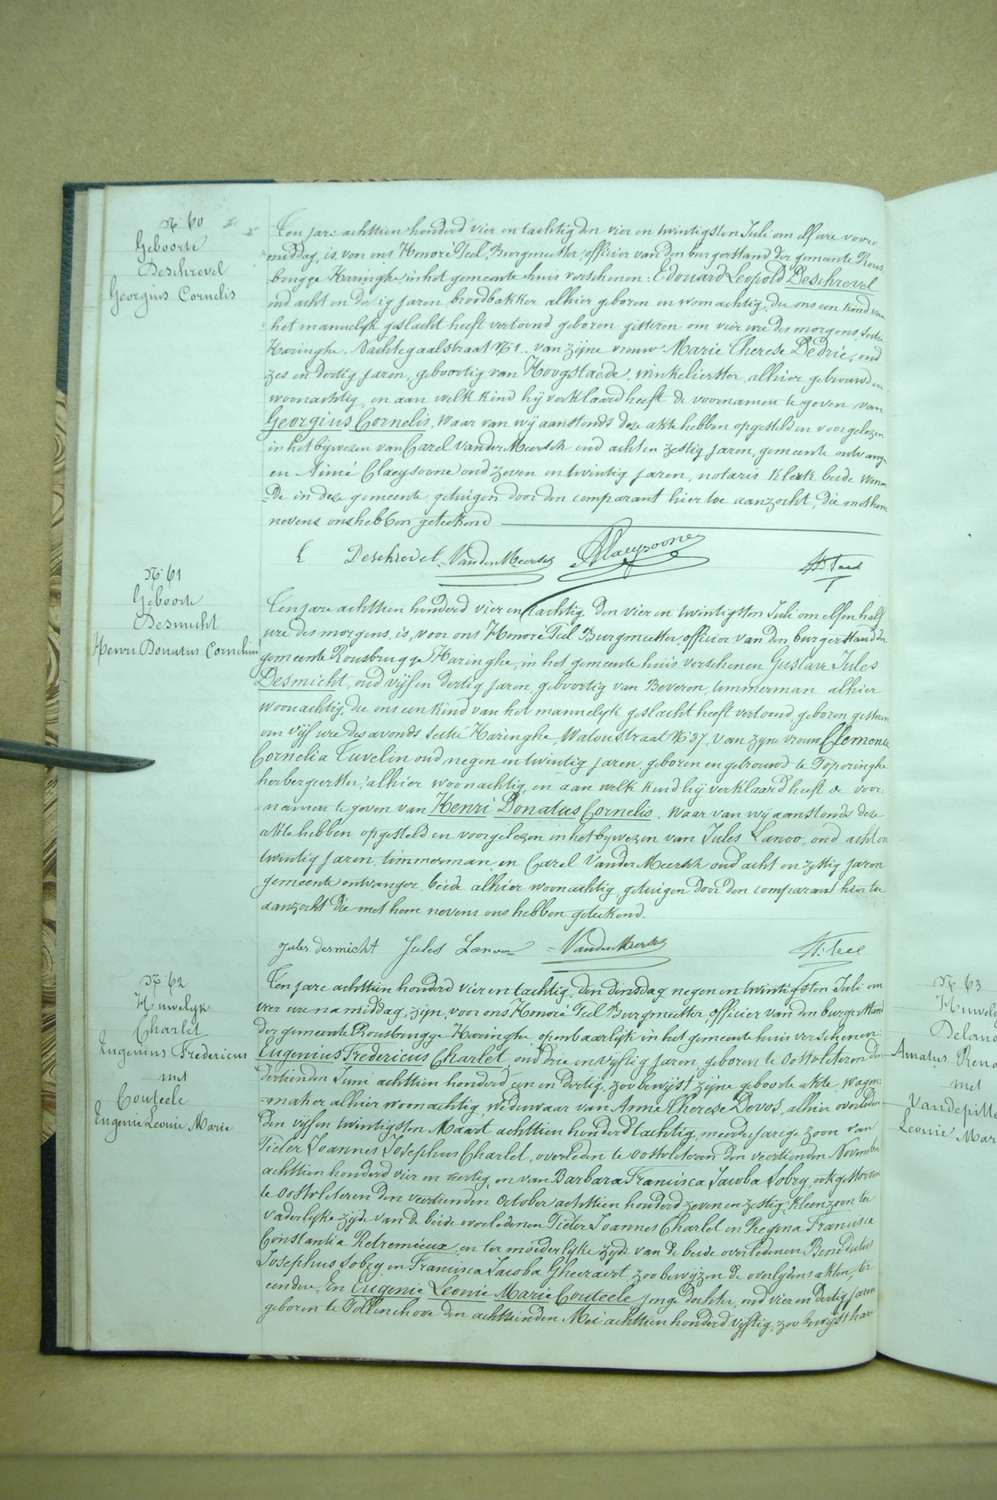 N° 60
Geboorte
Deschrevel
Georgius Cornelis
Ten jare achttien honderd vier en tachtig den vier en twintigsten Juli om elf ure voor-
middag, is, voor ons Honoré Teel, Burgmeester, officier van den burgerstand der gemeente Rous-
brugge Haringhe, in het gemeente huis verschenen: Edouard Leopold Deschrevel
oud acht en dertig jaren, broodbakker alhier geboren en woonachtig, die ons een kind van
het mannelijk geslacht heeft vertoond geboren gisteren om vier ure des morgens, sectie
Haringhe, Nachtegaalstraat N° 1, van zijne vrouw Marie Therese Dedrie, oud
zes en dertig jaren, geboortig van Hoogstaede, winkelierster, alhier getrouwd en
woonachtig, en aan welk kind hij verklaard heeft de voornamen te geven van
Georgius Cornelis, waar van wij aanstonds deze akte hebben opgesteld en voorgelezen
in het bijwezen van Carel Vander Meersch oud acht en zestig jaren, gemeente ontvanger
en Aimé Claeysoone oud zeven en twintig jaren, notaris klerk beide wonen-
de in deze gemeente, getuigen door den comparant hier toe aanzocht, die met hem
nevens ons hebben geteekend
E Deschrevel VanderMeersch AClaeysoone H. Teel
N° 61
Geboorte
Desmicht
Henri Donatus Cornelius
Ten jare achttien honderd vier en tachtig den vier en twintigsten Juli om elfen half
ure des morgens, is, voor ons Honoré Teel Burgmeester, officier van den burgerstand der
gemeente Rousbrugge Haringhe, in het gemeente huis verschenen Gustave Jules
Desmicht, oud vijf en dertig jaren, geboortig van Beveren, timmerman alhier
woonachtig, die ons een kind van het mannelijk geslacht heeft vertoond, geboren gisteren
om vijf ure des avonds sectie Haringhe, Walenstraat N° 37, van zijne vrouw Clemence
Cornelia Tuvelin oud negen en twintig jaren, geboren en getrouwd te Poperinghe
herbergierster, alhier woonachtig, en aan welk kind hij verklaard heeft de voor-
namen te geven van Henri Donatus Cornelis, waar van wij aanstonds deze
akte hebben opgesteld en voorgelezen in het bijwezen van Jules Lanoo, oud acht en
twintig jaren, timmerman en Carel Vander Meersch oud acht en zestig jaren
gemeente ontvanger, beide alhier woonachtig, getuigen door den comparant hier toe
aanzocht die met hem nevens ons hebben geteekend.
jules desmicht Jules Lanoo VanderMeersch H. Teel
N° 62
Huwelyk
Charlet
Eugenius Fredericus
met
Couteele
Eugenie Leonie Marie
Ten jare achttien honderd vier en tachtig, den dinsdag negen en twintigsten Juli om
vier ure na middag, zijn, voor ons Honoré Teel Burgmeester officier van den burgerstand
der gemeente Rousbrugge Haringhe openbaarlijk in het gemeente huis verschenen
Eugenius Fredericus Charlet, oud drie en vijftig jaren, geboren te Oostvleteren den
dertienden Juni achttien honderd een en dertig, zoo bewijst zijne geboorte akte, wagen-
maker alhier woonachtig, weduwaar van Anna Therese Devos, alhier overleden
den vijf en twintigsten Maart achttien honderd tachtig, meerderjarige zoon van
Pieter Joannes Josephus Charlet, overleden te Oostvleteren den veertienden November
achttien honderd vier en veertig, en van Barbara Francisca Jacoba Sobry, ook gestorven
te Oostvleteren den veertienden October achttien honderd zeven en zestig, kleenzoon ter
vaderlijke zijde van de beide overledenen Pieter Joannes Charlet en Regina Francisca
Constantia Retremieux, en ter moederlijke zijde van de beide overledenen Benedictus
Josephus Sobry en Francisca Jacoba Gheeraert, zoo bewijzen de overlijdens akten, ter
eender. En Eugenie Leonie Marie Couteele, jonge dochter, oud vier en dertig jaren
geboren te Pollinchove den achttienden Mei achttien honderd vijftig, zoo bewijst hare
N° 63
Huwel
Deland
Amatus Rena
met
Vandepitte
Leonie Mar